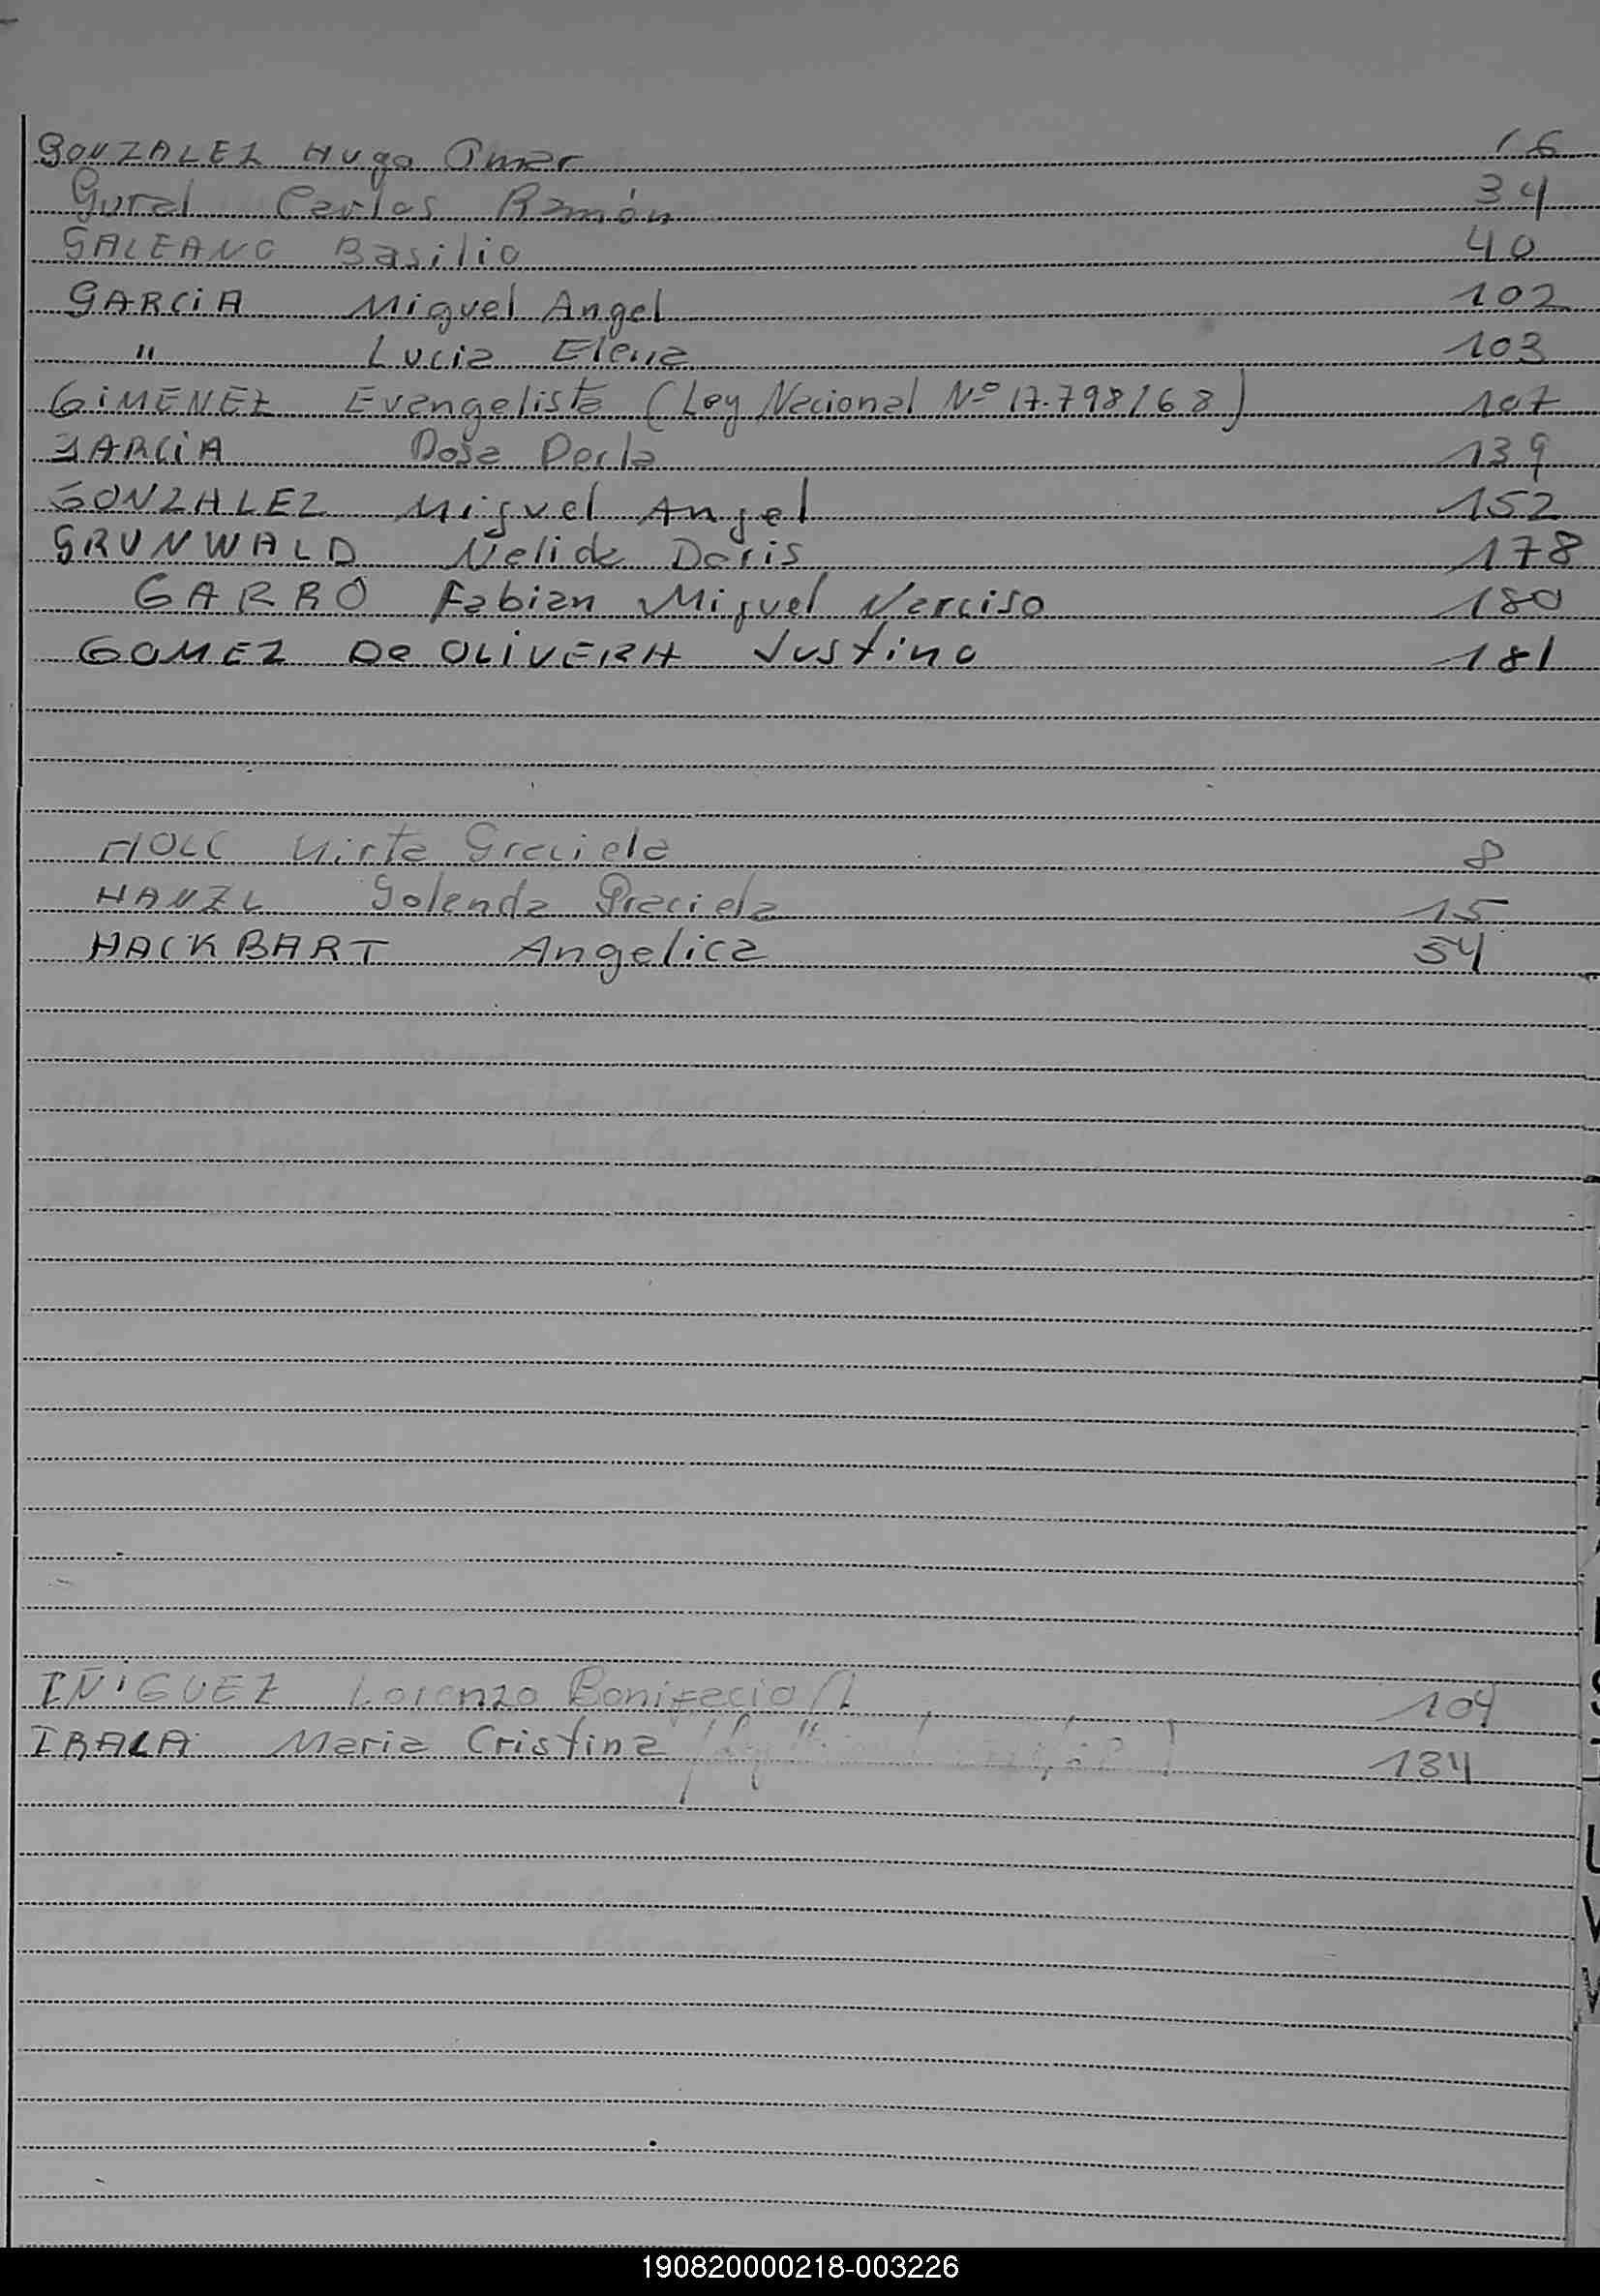 GONZALEZ Hugo Omar 16
Gural Carlos Ramón 34
GALEANO Basilio 40
GARCiA Miguel Angel 102
" Lucia Elena 103
GiMENEZ Evangelista (Ley Nacional Nº 17.798/68) 107
GARCiA Rosa Perla 139
GONZALEZ Miguel Angel 152
GRUNWALD Nelida Doris 178
GARRO Fabian Miguel Narciso 180
GOMEZ De OLiVERA Justino 181
HOLC Mirta Graciela 8
HANZL Yolanda Graciela 15
HACKBART Angelica 54
IÑIGUEZ Lorenzo Bonifacio 104
IBALA Maria Cristina 134
S
U
V
190820000218-003226